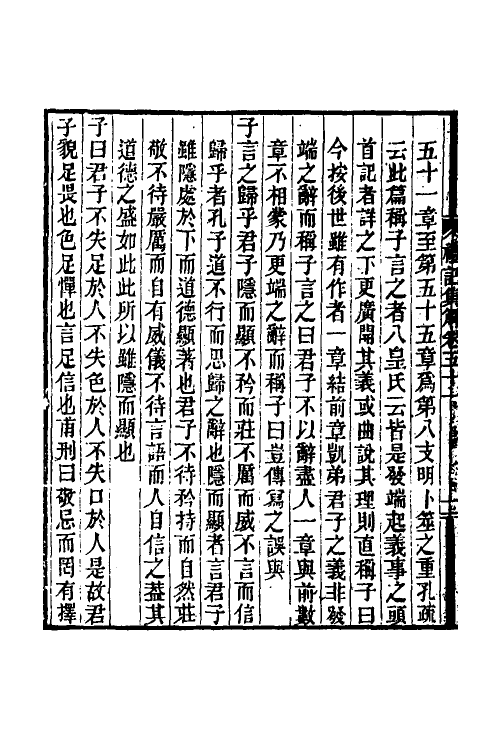 五十一章至第五十五章爲第八支明卜筮之重孔疏
云此篇稱子言之者八皇氏云皆是發端起義事之頭
首記者詳之下更廣開其義或曲說其理則直稱子曰
今按後世雖有作者一章結前章凱弟君子之義非發
端之辭而稱子言之曰君子不以辭盡人一章與前數
章不相蒙乃更端之辭而稱子曰豈傳寫之誤與
子言之歸乎君子隱而顯不矜而莊不厲而威不言而信
歸乎者孔子道不行而思歸之辭也隱而顯者言君子
雖隱處於下而道德顯著也君子不待矜持而自然莊
敬不待嚴厲而自有威儀不待言語而人自信之蓋其
道德之盛如此此所以雖隱而顯也
子曰君子不失足於人不失色於人不失口於人是故君
子貌足畏也色足憚也言足信也甫刑曰敬忌而罔有擇